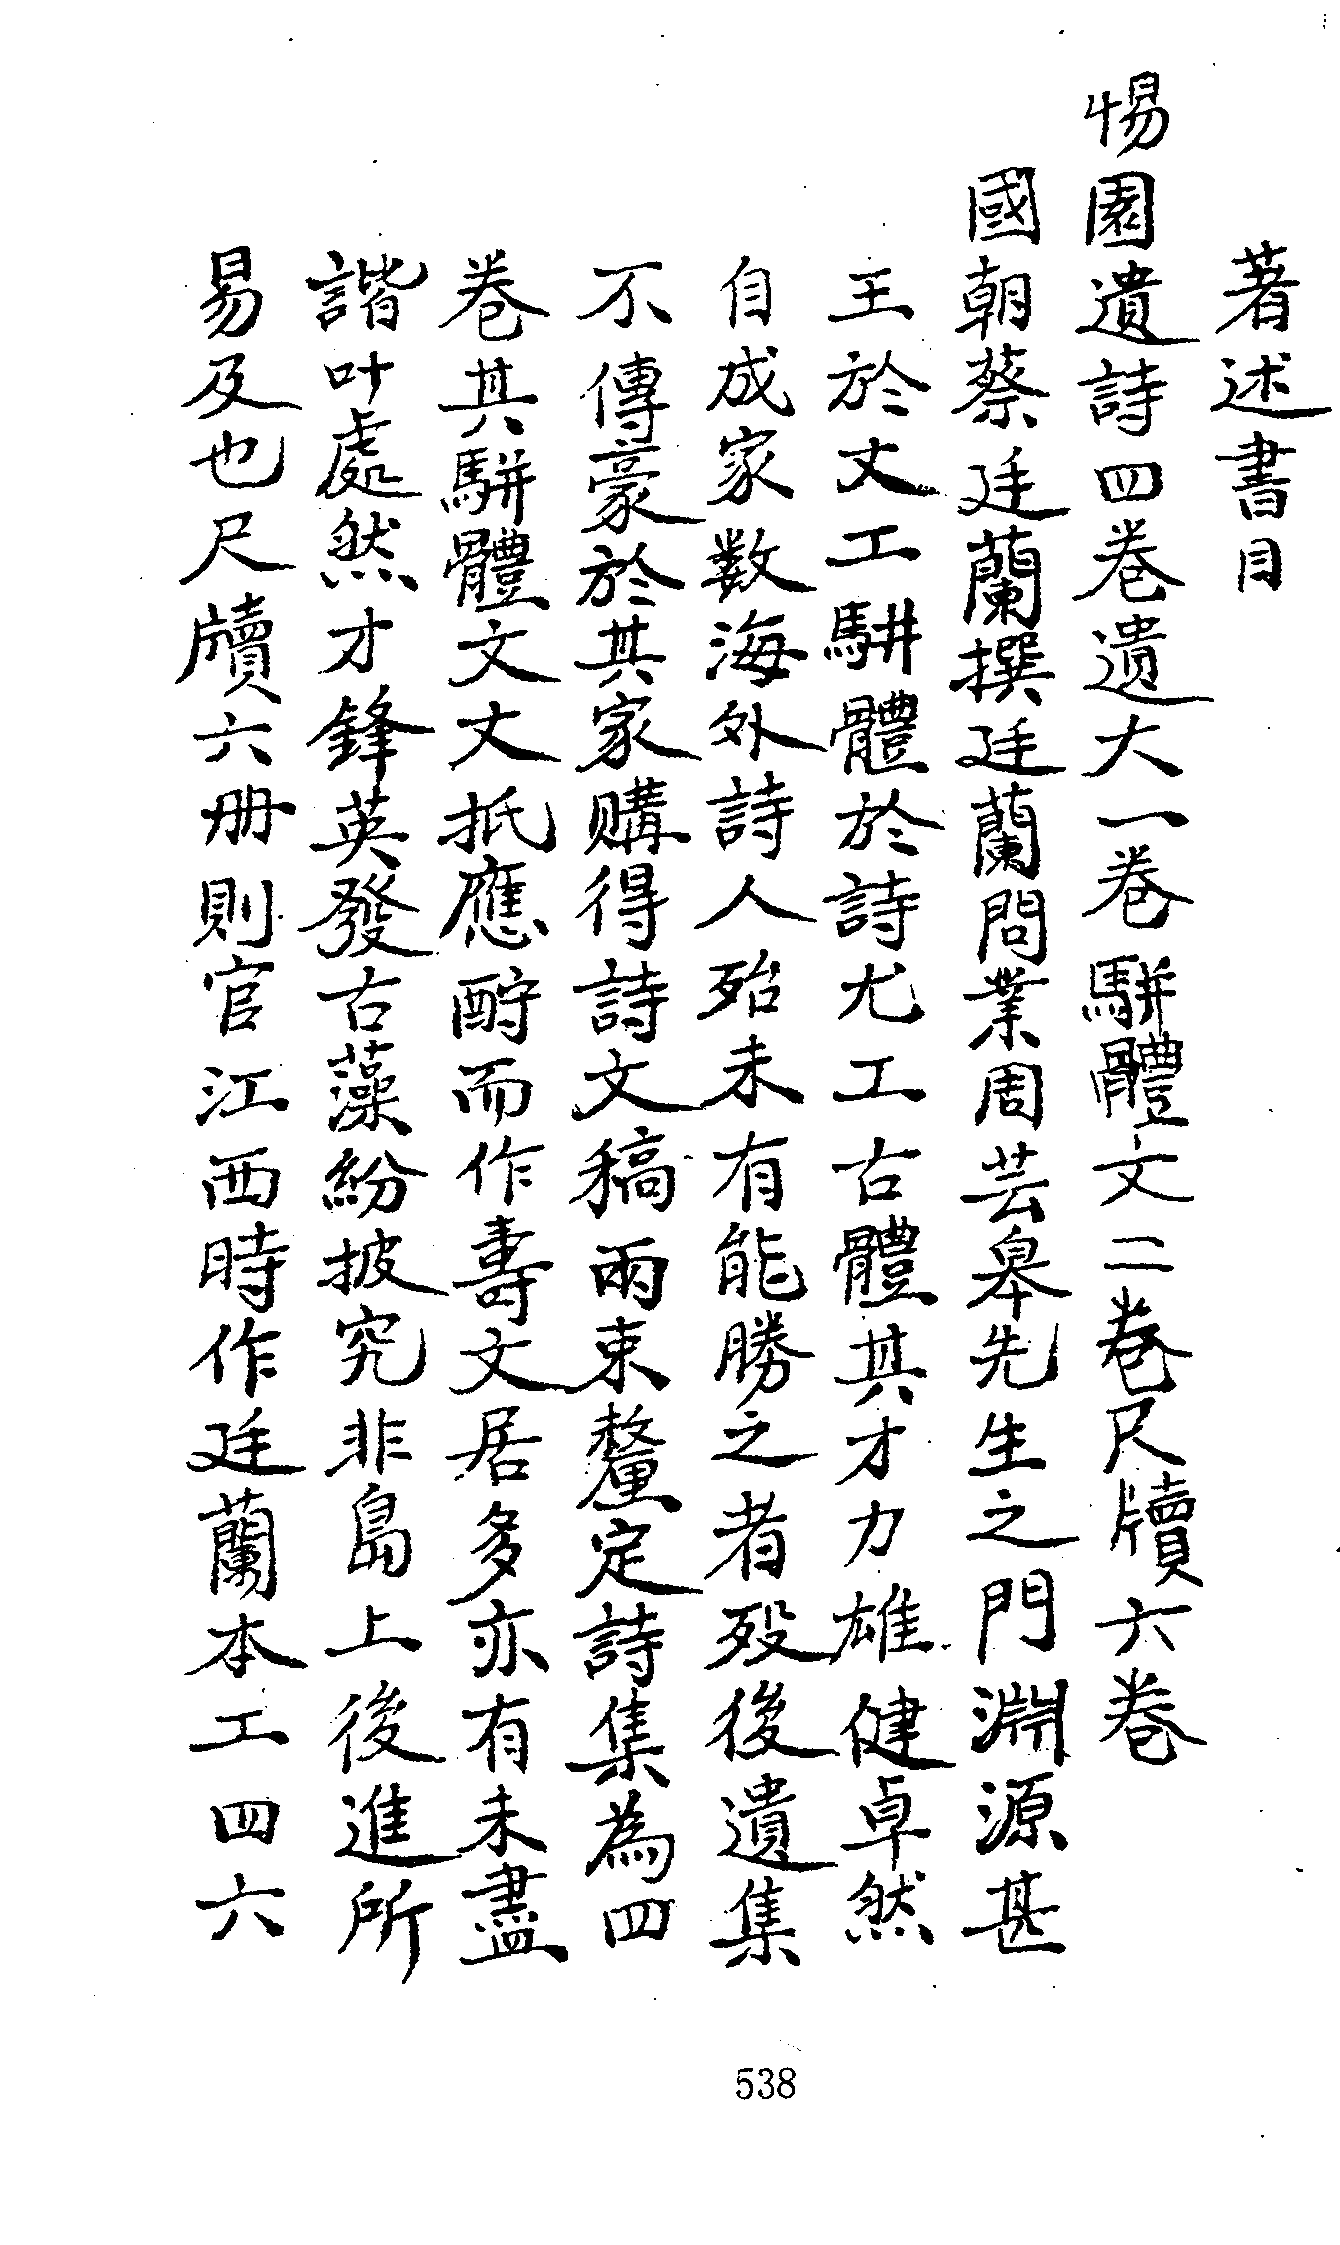 著述書目
惕園遺詩四卷遺大一卷駢體文二卷尺牘六卷
國朝蔡廷蘭撰廷蘭問業周芸皋先生之門淵源甚
王於丈工駢體於詩尤工古體其才力雄健卓然
自成家数海外詩人殆未有能勝之者歿後遺集
不傳豪於其家購得詩文稿兩束釐定詩集為四
卷其駢體文丈抵應酧而作壽文居多亦有未盡
諧叶處然才鋒英發古藻紛披究非島上後進所
易及也尺牘六册則官江西時作廷蘭本工四六
538